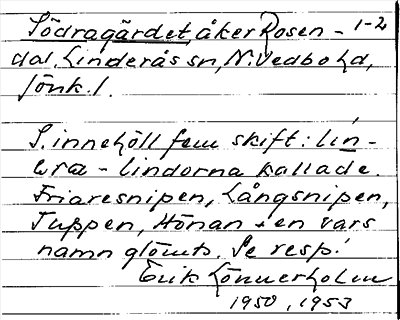 Södragärdet, åker Rosen- 1-2
dal, Linderås sn, N. Vedbo hd,
Jönk. l.
S. innehöll fem skift: lin-
- lindorna kallade.
Friaresnipen, Långsnipen,
Tuppen, Hönan + en vars
namn glömts. Se resp.!
Erik Lönnerholm
1950, 1953